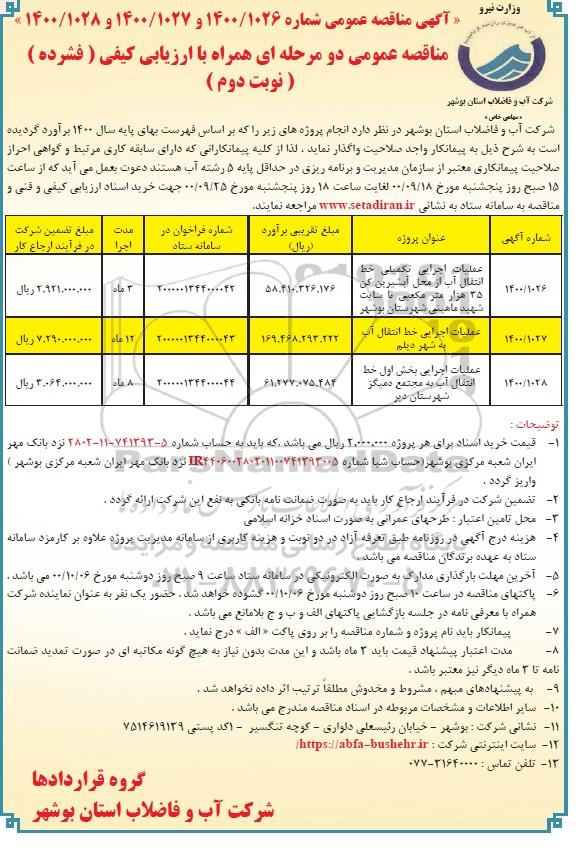 وزارت نیرو
« آگهی مناقصه عمومی شماره ۱۴۰۰/۱۰۲۶ و ۱۴۰۰/۱۰۲۷ و ۱۴۰۰/۱۰۲۸ »
مناقصه عمومی دو مرحله ای همراه با ارزیابی کیفی ( فشرده )
( نوبت دوم )
شرکت آب و فاضلاب استان بوشهر
« سهامی خاص »
شرکت آب و فاضلاب استان بوشهر در نظر دارد انجام پروژه های زیر را که بر اساس فهرست بهای پایه سال ۱۴۰۰ برآورد گردیده
است به شرح ذیل به پیمانکار واجد صلاحیت واگذار نماید ، لذا از کلیه پیمانکارانی که دارای سابقه کاری مرتبط و گواهی احراز
صلاحیت پیمانکاری معتبر از سازمان مدیریت و برنامه ریزی در حداقل پایه ۵ رشته آب هستند دعوت بعمل می آید که از ساعت
۱۵ صبح روز پنجشنبه مورخ ۰۰/۰۹/۱۸ لغایت ساعت ۱۸ روز پنجشنبه مورخ ۰۰/۰۹/۲۵ جهت خرید اسناد ارزیابی کیفی و فنی و
مناقصه به سامانه ستاد به نشانی www.setadiran.ir مراجعه نمایند.
شماره آگهی | عنوان پروژه | مبلغ تقریبی برآورد (ریال) | شماره فراخوان در سامانه ستاد | مدت اجرا | مبلغ تضمین شرکت در فرآیند ارجاع کار
۱۴۰۰/۱۰۲۶ | عملیات اجرایی تکمیلی خط انتقال آب از محل آبشیرین کن ۳۵ هزار متر مکعبی تا سایت شهید ماهینی شهرستان بوشهر | ۵۸.۴۱۰.۳۲۶.۱۷۶ | ۲۰۰۰۰۰۱۳۴۴۰۰۰۰۴۲ | ۳ ماه | ۲.۹۲۱.۰۰۰.۰۰۰ ریال
۱۴۰۰/۱۰۲۷ | عملیات اجرایی خط انتقال آب به شهر دیلم | ۱۶۹.۴۶۸.۲۹۳.۲۲۲ | ۲۰۰۰۰۰۱۳۴۴۰۰۰۰۴۳ | ۱۲ ماه | ۷.۲۹۰.۰۰۰.۰۰۰ ریال
۱۴۰۰/۱۰۲۸ | عملیات اجرایی بخش اول خط انتقال آب به مجتمع دمیگز شهرستان دیر | ۶۱.۲۷۷.۰۷۵.۴۸۴ | ۲۰۰۰۰۰۱۳۴۴۰۰۰۰۴۴ | ۸ ماه | ۳.۰۶۴.۰۰۰.۰۰۰ ریال
توضیحات :
۱- قیمت خرید اسناد برای هر پروژه ۲.۰۰۰.۰۰۰ ریال می باشد ،که باید به حساب شماره ۵-۷۴۱۳۹۳-۱۱-۲۸۰۲ نزد بانک مهر
ایران شعبه مرکزی بوشهر(حساب شبا شماره IR۴۴۰۶۰۰۲۸۰۲۰۱۱۰۰۷۴۱۳۹۳۰۰۵ نزد بانک مهر ایران شعبه مرکزی بوشهر )
واریز گردد .
۲- تضمین شرکت در فرآیند ارجاع کار باید به صورت ضمانت نامه بانکی به نفع این شرکت ارائه گردد .
۳- محل تامین اعتبار : طرحهای عمرانی به صورت اسناد خزانه اسلامی
۴- هزینه درج آگهی در روزنامه طبق تعرفه آزاد در دو نوبت و هزینه کاربری از سامانه مدیریت پروژه علاوه بر کارمزد سامانه
ستاد به عهده برندگان مناقصه می باشد .
۵- آخرین مهلت بارگذاری مدارک به صورت الکترونیکی در سامانه ستاد ساعت ۹ صبح روز دوشنبه مورخ ۰۰/۱۰/۰۶ می باشد .
۶- پاکتهای مناقصه در ساعت ۱۰ صبح روز دوشنبه مورخ ۰۰/۱۰/۰۶ گشوده خواهد شد . حضور یک نفر به عنوان نماینده شرکت
همراه با معرفی نامه در جلسه بازگشایی پاکتهای الف و ب و ج بلامانع می باشد .
۷- پیمانکار باید نام پروژه و شماره مناقصه را بر روی پاکت « الف » درج نماید .
۸- مدت اعتبار پیشنهاد قیمت باید ۳ ماه باشد و این مدت بدون نیاز به هیچ گونه مکاتبه ای در صورت تمدید ضمانت
نامه تا ۳ ماه دیگر نیز معتبر باشد .
۹- به پیشنهادهای مبهم ، مشروط و مخدوش مطلقاً ترتیب اثر داده نخواهد شد .
۱۰- سایر اطلاعات و مشخصات مربوطه در اسناد مناقصه مندرج می باشد .
۱۱- نشانی شرکت : بوشهر - خیابان رئیسعلی دلواری - کوچه تنگسیر - ۱کد پستی ۷۵۱۴۶۱۹۱۳۹
۱۲- سایت اینترنتی شرکت : https://abfa-bushehr.ir/
۱۳- تلفن تماس : ۳۱۶۴۰۰۰۰-۰۷۷
گروه قراردادها
شرکت آب و فاضلاب استان بوشهر